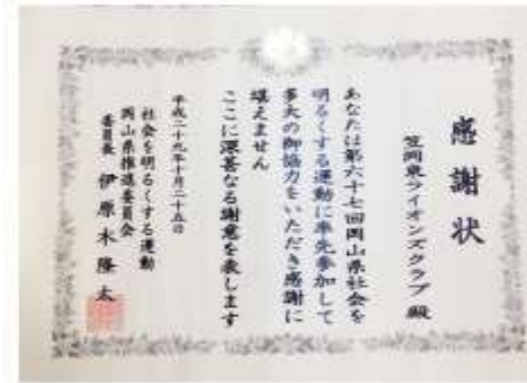 感謝状
笠岡東ライオンズクラブ 殿
あなたは第六十七回岡山県社会を
明るくする運動に率先参加して
多大の御協力をいただき感謝に
堪えません
ここに深甚なる謝意を表します
平成二十九年十月二十五日
社会を明るくする運動
岡山県推進委員会
委員長 伊原木隆太